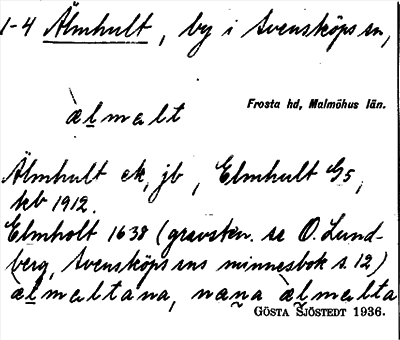 1-4 Älmhult, by i Svensköps sn,
Frosta hd, Malmöhus län.
àlmalt
Älmhult ek, jb, Elmhult G5,
kb 1912.
Elmholt 1638 (gravsten. se O. Lund-
berg, Svensköps sns minnesbok s. 12)
àlmaltana, nana àlmalta
GÖSTA SJÖSTEDT 1936.